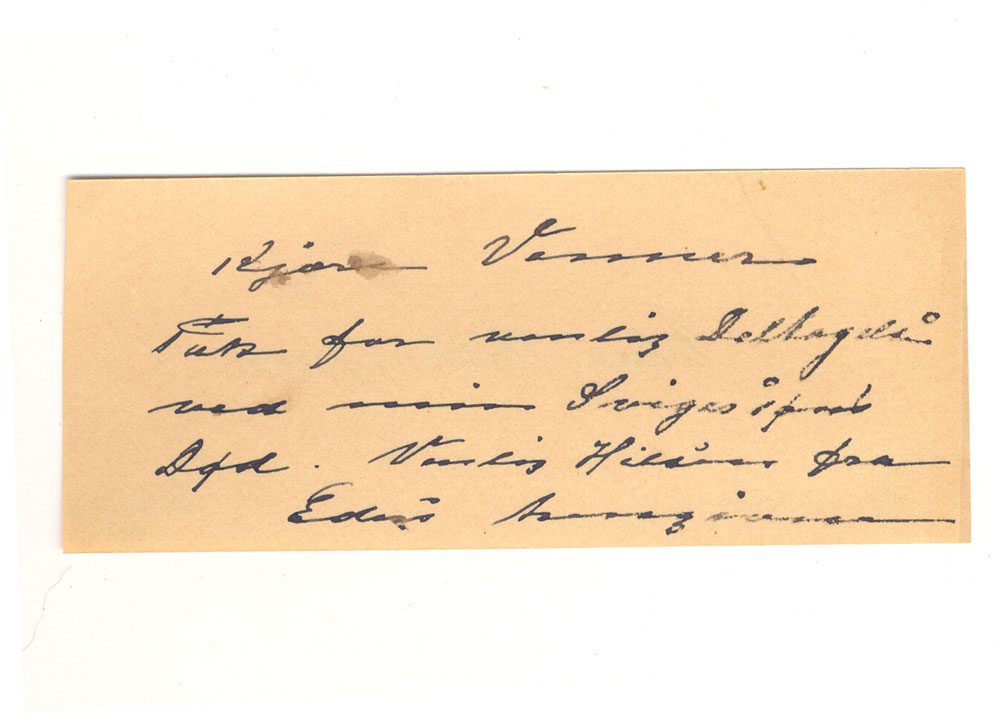 Kjære Venner
Tak for venlig Deltagelse
ved min Svigersøns
Død. Venlig Hilsen fra